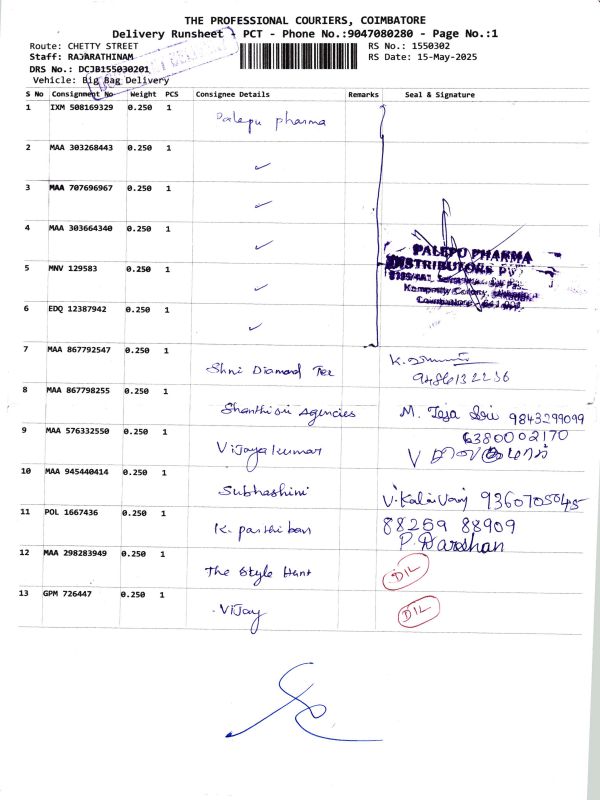 THE PROFESSIONAL COURIERS, COIMBATORE
Delivery Runsheet - PCT - Phone No.:9047080280 - Page No.:1
Route: CHETTY STREET
RS No.: 1550302
Staff: RAJARATHINAM
RS Date: 15-May-2025
DRS No.: DCJB155030201
Vehicle: Big Bag Delivery
S No Consignment No Weight PCS Consignee Details Remarks Seal & Signature
1 IXM 508169329 0.250 1 Palepu pharma
2 MAA 303268443 0.250 1 ✓
3 MAA 707696967 0.250 1 ✓
4 MAA 303664340 0.250 1 ✓
PALEPU PHARMA
DISTRIBUTORS
5 MNV 129583 0.250 1 ✓
Coimbatore
6 EDQ 12387942 0.250 1 ✓
7 MAA 867792547 0.250 1 Shri Diamond Tex
9486132236
8 MAA 867798255 0.250 1 Shanthisri Agencies M. Teja Sri 9843299099
9 MAA 576332550 0.250 1 Vijayakumar 6380002170
10 MAA 945440414 0.250 1 Subhashini V. Kalavani 9360705045
11 POL 1667436 0.250 1 K. parthiban 88259 88909
P. Darshan
12 MAA 298283949 0.250 1 The Style Hunt D/L
13 GPM 726447 0.250 1 Vijay D/L